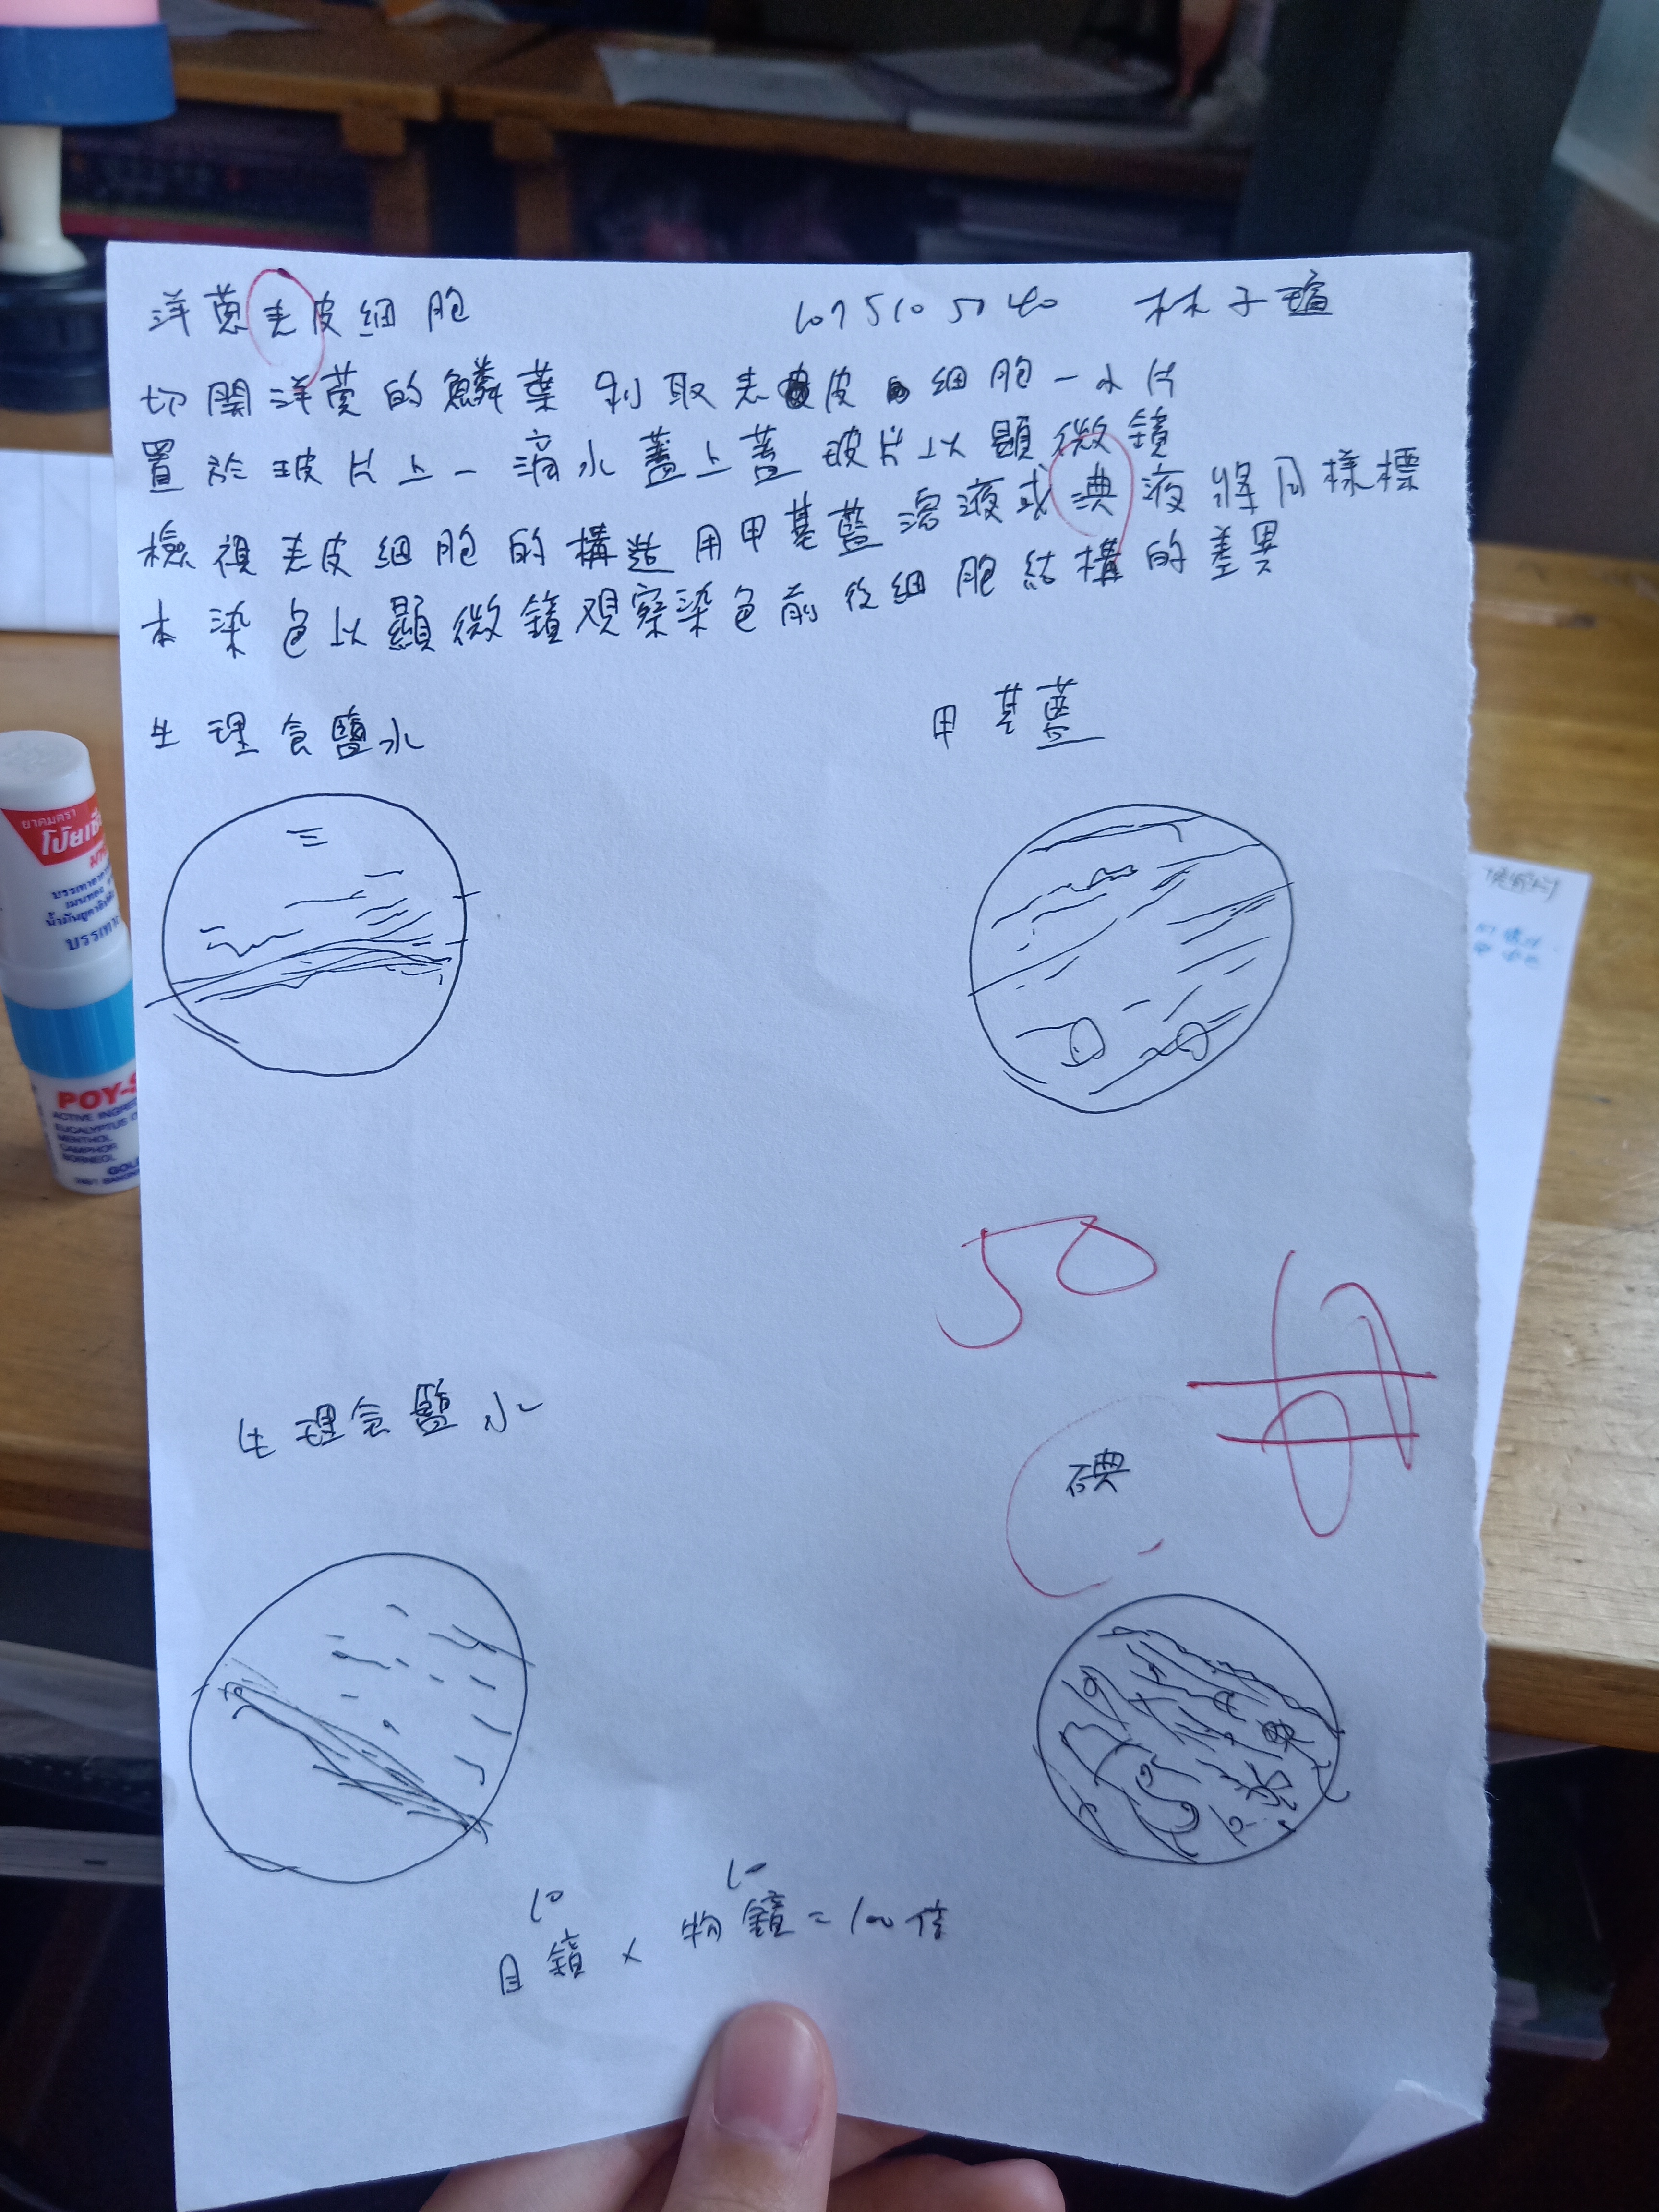 洋蔥表皮細胞 1075105040 林子瑄
切開洋蔥的鱗葉 剝取表皮細胞一小片
置於玻片上一滴水蓋上蓋玻片以顯微鏡
檢視表皮細胞的構造用甲基藍溶液或淟液將同樣標
本染色以顯微鏡觀察染色前後細胞結構的差異
生理食鹽水
甲基藍
ยาดมตรา
โป๊ยเซียน
POY-S
ACTIVE INGRE
EUCALYPTUS O
MENTHOL
CAMPHOR
BORNEOL
50
生理食鹽水
碘
10 10
目鏡 × 物鏡 = 100倍